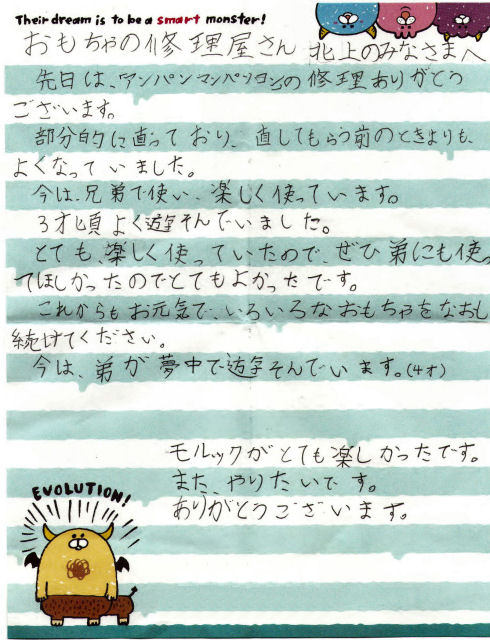 Their dream is to be a smart monster!
おもちゃの修理屋さん 北上のみなさまへ
先日は、アンパンマンパソコンの修理ありがとう
ございます。
部分的に直っており、直してもらう前のときよりも、
よくなっていました。
今は、兄弟で使い、楽しく使っています。
3才頃よく遊そんでいました。
とても、楽しく使っていたので、ぜひ弟にも使っ
てほしかったのでとてもよかったです。
これからもお元気で、いろいろなおもちゃをなおし
続けてください。
今は、弟が夢中で遊そんでいます。(4才)
モルックがとても楽しかったです。
また、やりたいです。
ありがとうございます。
EVOLUTION!